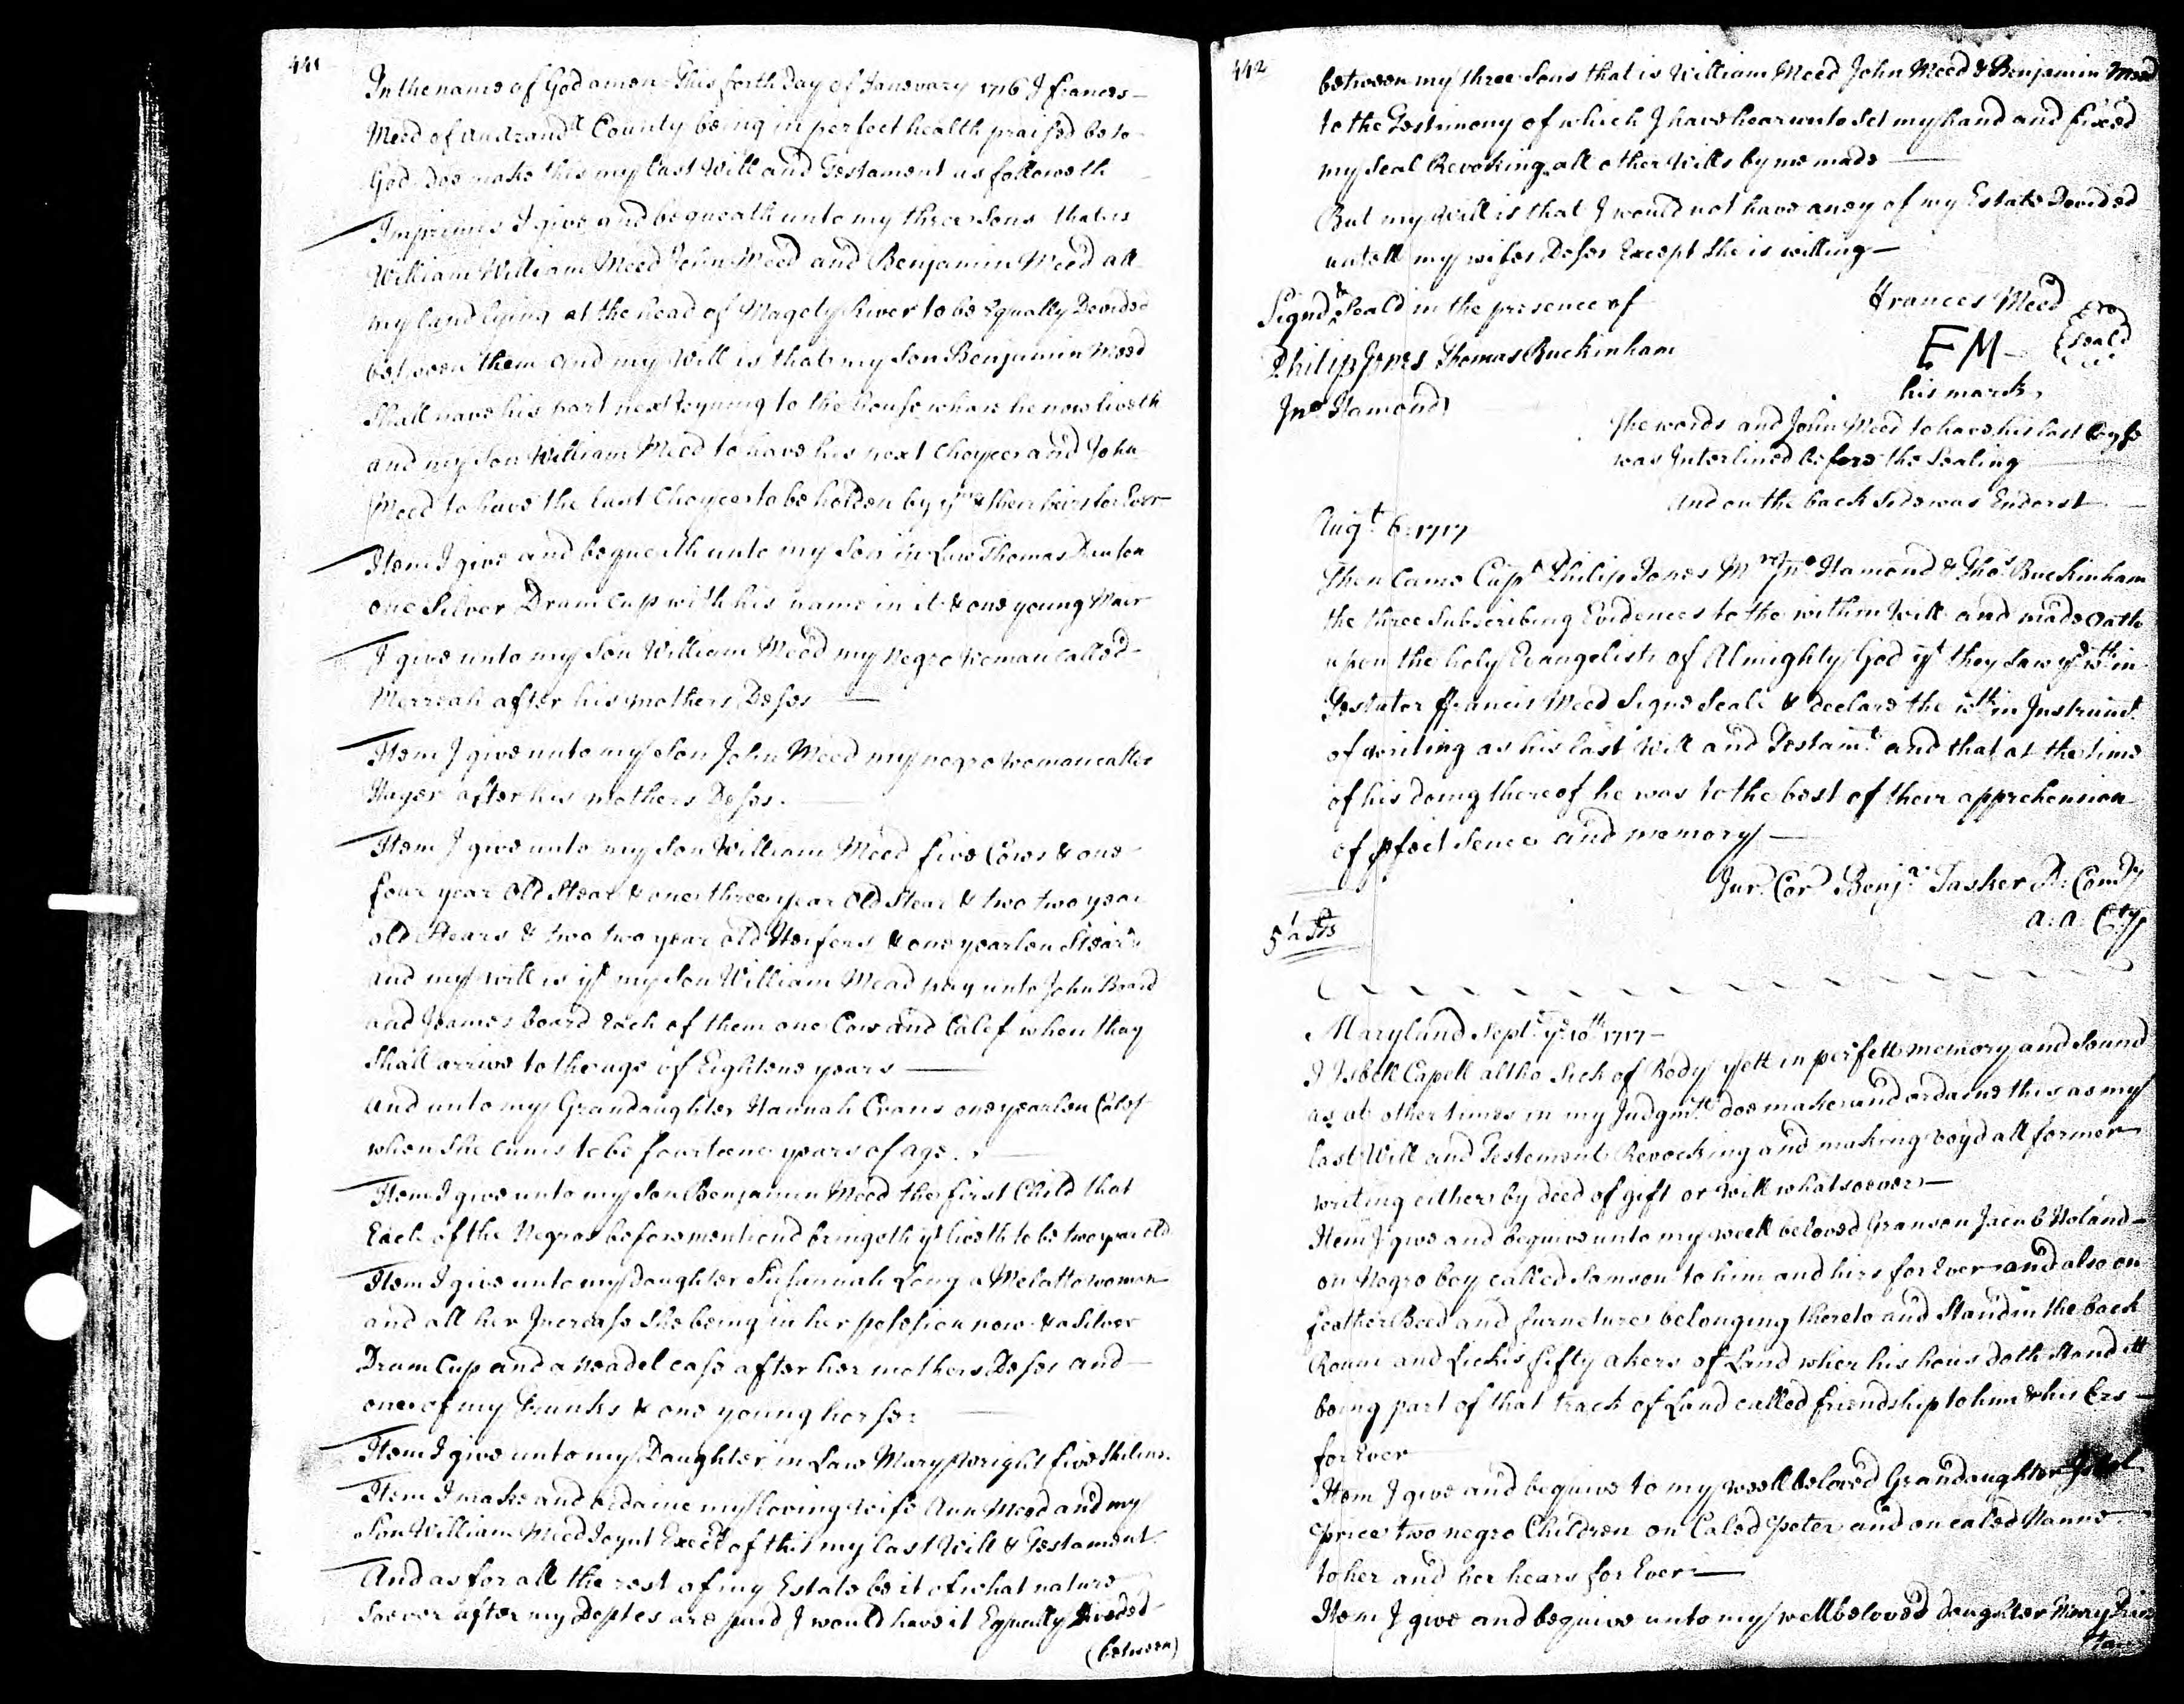 441
In the name of God amen This forth Day of Janevary 1716 I frances
Meed of County being in perfect health praised be to
God doe make this my last Will and Testament as followeth
Imprimis I give and bequeath unto my three sons that is
William William Meed John Meed and Benjamin Meed all
my land lying at the head of Magoty River to be Equally Devided
between them and my Will is that my son Benjamin Meed
shall have his part next to the house whare he now liveth
and my son William Meed to have his next Choyces and John
Meed to have the last Choyces to be holden by ym & their heirs for Ever
Item I give and bequeath unto my son in Law Thomas Denton
one Silver Dram Cup with his name in it & one young Mair
I give unto my son William Meed my Negro Woman called
Merreah after his mothers Deses
Item I give unto my son John Meed my negro woman called
Hager after his mothers Deses
Item I give unto my son William Meed five Cows & one
four year old stear & one three year old stear & two two year
old stears & two two year old Heifers & one yearlon stear
and my will is yt my son William Mead pay unto John Beard
and Jeames beard Each of them one Cow and Calef when they
shall arrive to the age of Eightene years
and unto my Grandaughter Hannah Evans one yearlon Calef
when she cums to be fourteene years of age
Item I give unto my son Benjamin Meed the first Child that
Each of the Negros beforementiend bringeth yt liveth to be two year old
Item I give unto my Daughter Susannah Long a Melatto woman
and all her Increase she being in her possesion now & a silver
Dram Cup and a Neadel case after her mothers Deses and
one of my Trunks & one young horse
Item I give unto my Daughter in Law Mary Wright five shilins
Item I make and ordaine my loving wife Ann Meed and my
son William Meed Joynt Exect of this my last Will & Testament
And as for all the rest of my Estate be it of what nature
soever after my Deptes are paid I would have it Equally Diveded
(between)
442
between my three sons that is William Meed John Meed & Benjamin Meed
to the Testimony of which I have hearunto set my hand and fixed
my seal Revoking all other Wills by me made
But my Will is that I would not have aney of my Estate Devided
untell my wifes Deses Except she is willing
Signd & Seald in the presence of Frances Meed
Philip Jones Thomas Buckinham FM seald
Jno Hamond his mark
The words and John Meed to have his last
was Interlined before the Sealing
And on the back side was Endorst
Augt 6: 1717
Then Came Capt Philip Jones Mr Jno Hamond & Thos Buckinham
the three Subscribing Evidences to the within Will and made oath
upon the holy Evangelists of Almighty God yt they saw ye wthin
Testator ffrancis Meed Signe Seale & declare the wthin Instrumt
of writing as his last Will and Testamt and that at the time
of his doing thereof he was to the best of their apprehension
of pfect sence and memory
Jur Cor Benja Tasker D: Comry
A: A: Cty
Maryland Sept ye 10th 1717
I Isbell Capell altho sick of Body yett in perfett memory and sound
as at other times in my Judgmtt doe make and ordaine this as my
last Will and Testement Revocking and making voyd all former
writing either by deed of gift or will whatsoever
Item I give and bequive unto my well beloved Granson Jacub Holand
on Negro boy called Samson to him and hirs for Ever and also on
feather Beed and furnetures belonging thereto and Stand in the back
Roume and Fifty akers of Land wher his hous doth stand itt
being part of that track of Land called friendship to him & his Ers
for Ever
Item I give and bequive to my well beloved Grandaughter
price two negro Children on Caled peter and on caled Nanne
to her and her hears for Ever
Item I give and bequive unto my well beloved daughter Mary